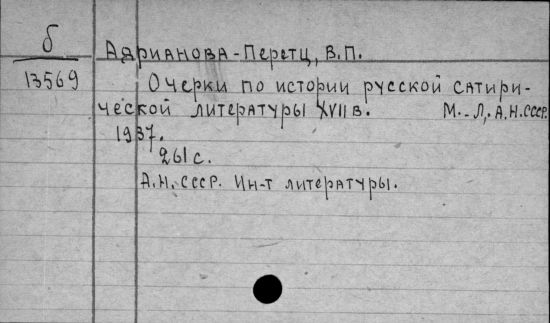 б
13569
Адрианова-Перетц, В.П.
Очерки по истории русской сатири-
ческой литературы XVII в. М.-Л., А.Н.СССР.
1937.
261 с.
А.Н.СССР. Ин-т литературы.